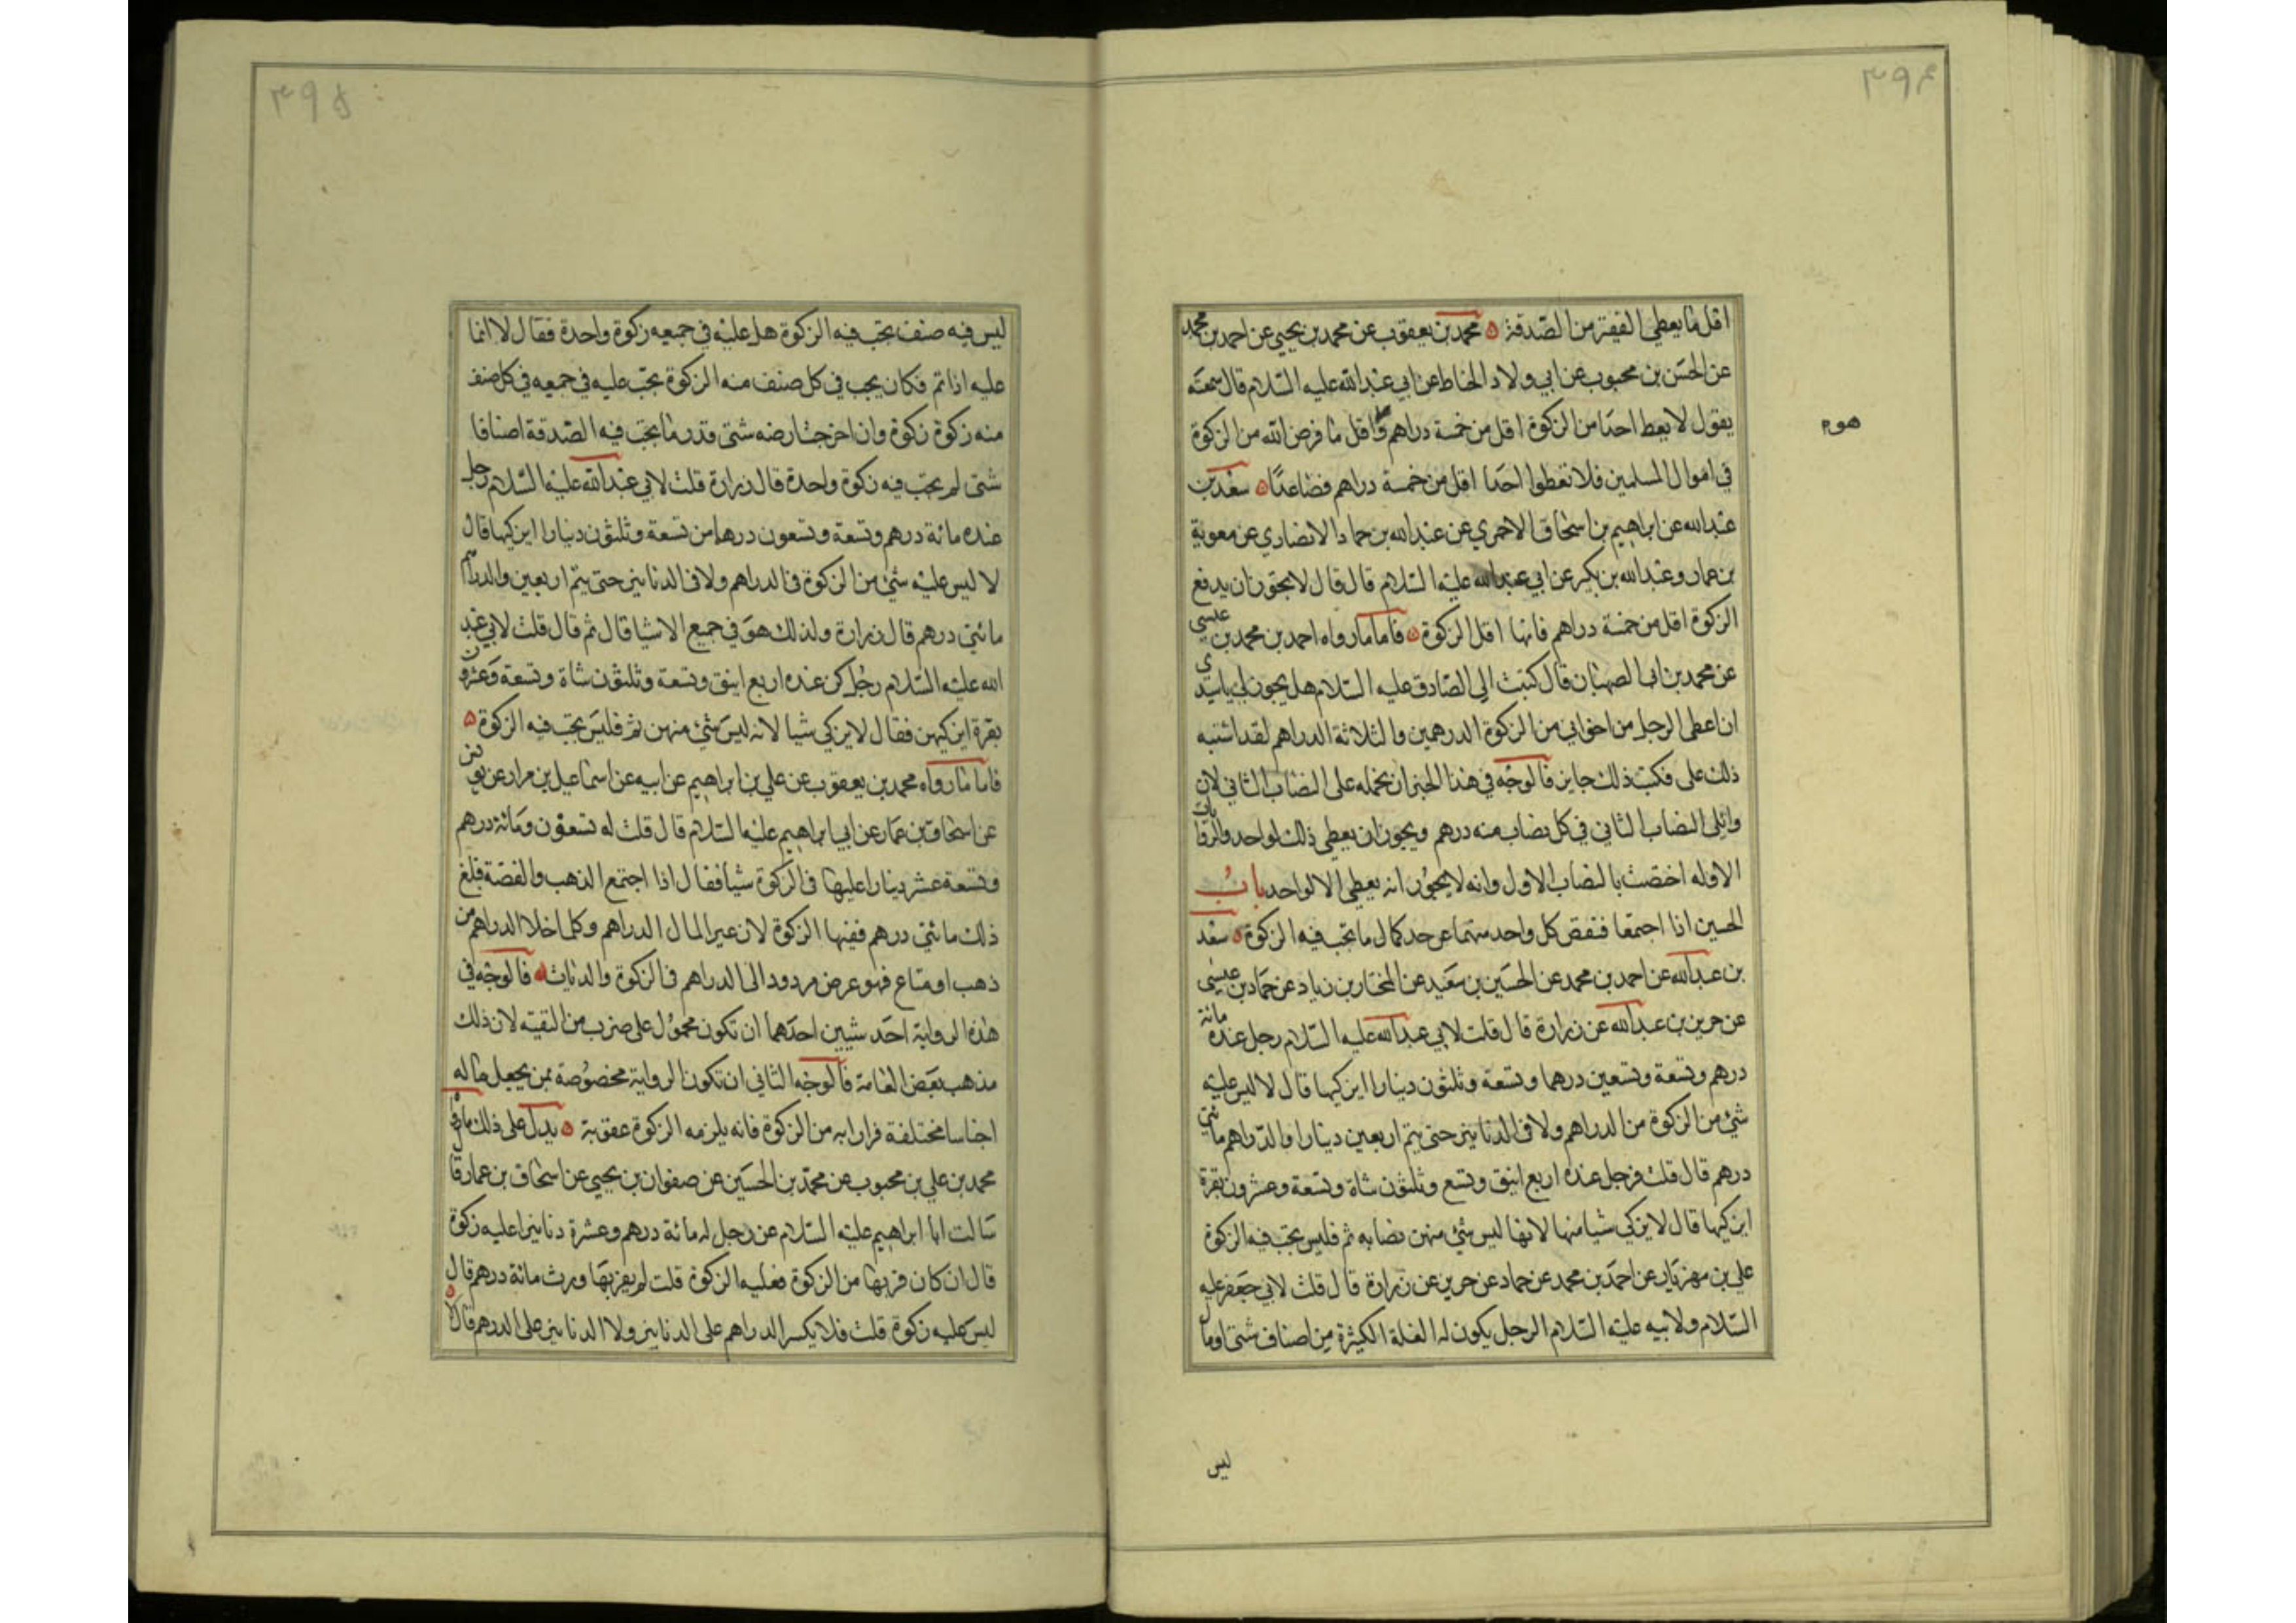 ٣٩٤
اقل ما يعطى الفقير من الصدقة ه محمد بن يعقوب عن محمد بن يحيى عن احمد بن محمد
عن الحسن بن محبوب عن ابي ولاد الحناط عن ابي عبد الله عليه السلام قال سمعته
يقول لا يعط احدا من الزكوة اقل من خمسة دراهم واقل ما فرض الله من الزكوة
هو م
في اموال المسلمين فلا تعطوا احدا اقل من خمسة دراهم فضاعدا ه سعد بن
عبد الله عن ابراهيم بن اسحاق الاحمري عن عبد الله بن حماد الانصاري عن معوية
بن عمار وعبد الله بن بكير عن ابي عبد الله عليه السلام قال قال لا يجوز ان يدفع
الزكوة اقل من خمسة دراهم فانها اقل الزكوة ه فاما ما رواه احمد بن محمد بن عيسى
عن محمد بن ابي الصهبان قال كتبت الى الصادق عليه السلام هل يجوز لي يا سيدي
ان اعطى الرجل من اخواني من الزكوة الدرهمين والثلاثة الدراهم لقد اشتبه
ذلك على فكتب ذلك جايز فالوجه في هذا الخبر ان نحمله على النصاب الثاني لان
وايلى النصاب الثاني في كل نصاب منه درهم ويجوز ان يعطى ذلك لواحد والروايات
الاوله اختصت بالنصاب الاول وانه لا يجوز انه يعطى الا لواحد باب
الحسين اذا اجتمعا فنقص كل واحد منهما عن حد كمال ما تجب فيه الزكوة ه سعد
بن عبد الله عن احمد بن محمد عن الحسين بن سعيد عن المختار بن زياد عن حماد بن عيسى
عن حريز بن عبد الله عن زرارة قال قلت لابي عبد الله عليه السلام رجل عنده مائة
درهم وتسعة وتسعين درهما وتسعة وثلثون دينارا ايزكيها قال لا ليس عليه
شئ من الزكوة من الدراهم ولا في الدنانير حتى يتم اربعين دينارا والدراهم مائتي
درهم قال قلت فرجل عنده اربع اينق وتسع وثلثون شاة وتسعة وعشرون بقرة
ايزكيها قال لا يزكي شيا منها لانها ليس شئ منهن نصابه تم فليس تجب فيه الزكوة
علي بن مهزيار عن احمد بن محمد عن حماد عن حريز عن زرارة قال قلت لابي جعفر عليه
السلام ولابيه عليه السلام الرجل يكون له الغلة الكثيرة من اصناف شتى او مال
ليس
٣٩٥
ليس فيه صنف تجب فيه الزكوة هل عليه في جميعه زكوة واحدة فقال لا انما
عليه اذا تم فكان يجب في كل صنف منه الزكوة تجب عليه في جميعه في كل صنف
منه زكوة زكوة وان اخرجت ارضه شتى قدر ما تجب فيه الصدقة اصنافا
شتى لم تجب فيه زكوة واحدة قال زرارة قلت لابي عبد الله عليه السلام رجل
عنده مائة درهم وتسعة وتسعون درهما من تسعة وثلثون دينارا ايزكيها قال
لا ليس عليه شئ من الزكوة في الدراهم ولا في الدنانير حتى يتم اربعين والدراهم
مائتي درهم قال زرارة ولذلك هو في جميع الاشيا قال ثم قال قلت لابي عبد
الله عليه السلام رجل كن عنده اربع اينق وتسعة وثلثون شاة وتسعة وعشرون
بقرة ايزكيهن فقال لا يزكي شيا لانه ليس شئ منهن تم فليس تجب فيه الزكوة ه
فاما ما رواه محمد بن يعقوب عن علي بن ابراهيم عن ابيه عن اسماعيل بن مرار عن يونس
عن اسحاق بن عمار عن ابي ابراهيم عليه السلام قال قلت له تسعون ومائة درهم
وتسعة عشر دينارا عليها في الزكوة شيا فقال اذا اجتمع الذهب والفضة فبلغ
ذلك مائتي درهم ففيها الزكوة لان عير المال الدراهم وكلما خلا الدراهم من
ذهب او متاع فهو عرض مردود الى الدراهم في الزكوة والديات ه فالوجه في
هذه الرواية احد شيين احدهما ان تكون محمول على ضرب من التقية لان ذلك
مذهب بعض العامة فالوجه الثاني ان تكون الرواية مخصوصة بمن يجعل ماله
اجناسا مختلفة فرارا به من الزكوة فانه يلزمه الزكوة عقوبة ه يدل على ذلك ما رواه
محمد بن علي بن محبوب عن محمد بن الحسين عن صفوان بن يحيى عن اسحاق بن عمار قال
سالت ابا ابراهيم عليه السلام عن رجل له مائة درهم وعشرة دنانير اعليه زكوة
قال ان كان فر بها من الزكوة فعليه الزكوة قلت لم يفر بها ورث مائة درهم قال
ليس عليه زكوة قلت فلا يكسر الدراهم على الدنانير ولا الدنانير على الدرهم قال لا ه